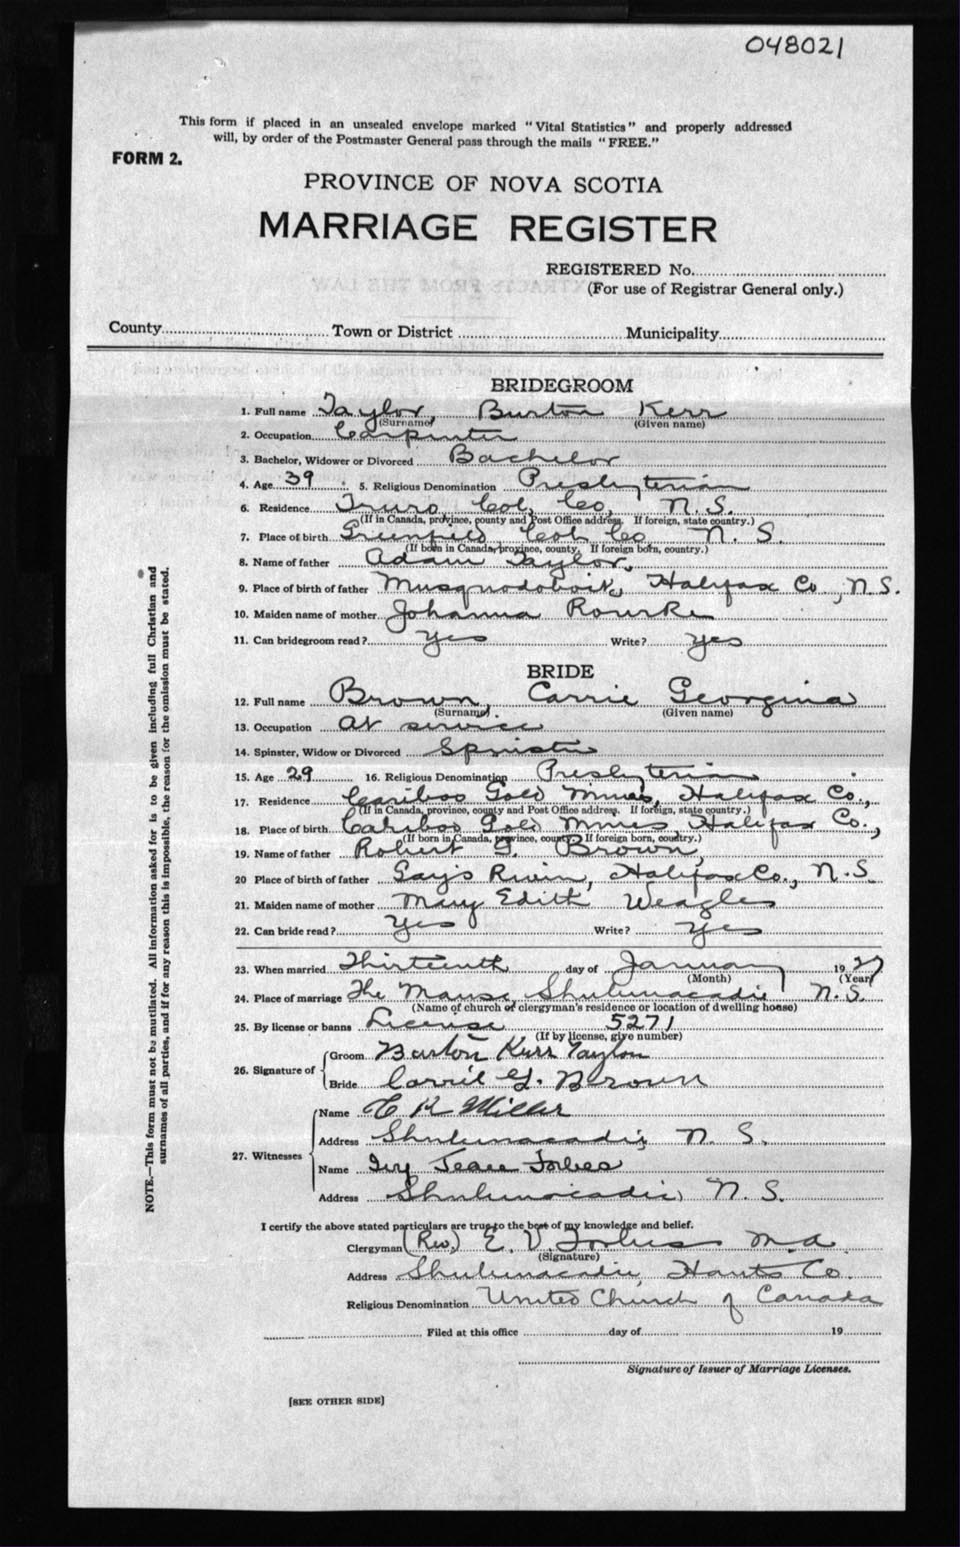 048021
This form if placed in an unsealed envelope marked "Vital Statistics" and properly addressed
will, by order of the Postmaster General pass through the mails "FREE."
FORM 2.
PROVINCE OF NOVA SCOTIA
MARRIAGE REGISTER
REGISTERED No.
(For use of Registrar General only.)
County Town or District Municipality
BRIDEGROOM
1. Full name Taylor, Burton Kerr
(Surname) (Given name)
2. Occupation Carpenter
3. Bachelor, Widower or Divorced Bachelor
4. Age 39 5. Religious Denomination Presbyterian
6. Residence Truro Col. Co, N.S.
(If in Canada, province, county and Post Office address. If foreign, state country.)
7. Place of birth Greenfield Col. Co N.S.
(If born in Canada, province, county. If foreign born, country.)
8. Name of father Adam Taylor,
9. Place of birth of father Musquodoboit, Halifax Co., N.S.
10. Maiden name of mother Johanna Rourke
11. Can bridegroom read? Yes Write? yes
BRIDE
12. Full name Brown, Carrie Georgina
(Surname) (Given name)
13. Occupation at service
14. Spinster, Widow or Divorced Spinster
15. Age 29 16. Religious Denomination Presbyterian
17. Residence Cariboo Gold Mines, Halifax Co.,
(If in Canada, province, county and Post Office address. If foreign, state country.)
18. Place of birth Cariboo Gold Mines Halifax Co.,
(If born in Canada, province, county. If foreign born, country.)
19. Name of father Robert G. Brown,
20 Place of birth of father Gays River, Halifax Co., N.S.
21. Maiden name of mother Mary Edith Weagles
22. Can bride read? Yes Write? Yes
23. When married Thirteenth day of January 1927
(Month) (Year)
24. Place of marriage The Manse, Shubenacadie N.S.
(Name of church or clergyman's residence or location of dwelling house)
25. By license or banns License 5271
(If by license, give number)
26. Signature of
Groom Burton Kerr Taylor
Bride Carrie G. Brown
27. Witnesses
Name E K Miller
Address Shubenacadie, N. S.
Name Ivy Jean Forbes
Address Shubenacadie, N. S.
I certify the above stated particulars are true to the best of my knowledge and belief.
Clergyman (Rev.) E. V. Forbes M.A.
(Signature)
Address Shubenacadie, Hants Co.
Religious Denomination United Church of Canada
Filed at this office day of 19
Signature of Issuer of Marriage Licenses.
[SEE OTHER SIDE]
NOTE.—This form must not be mutilated. All information asked for is to be given including full Christian and
surnames of all parties, and if for any reason this is impossible, the reason for the omission must be stated.